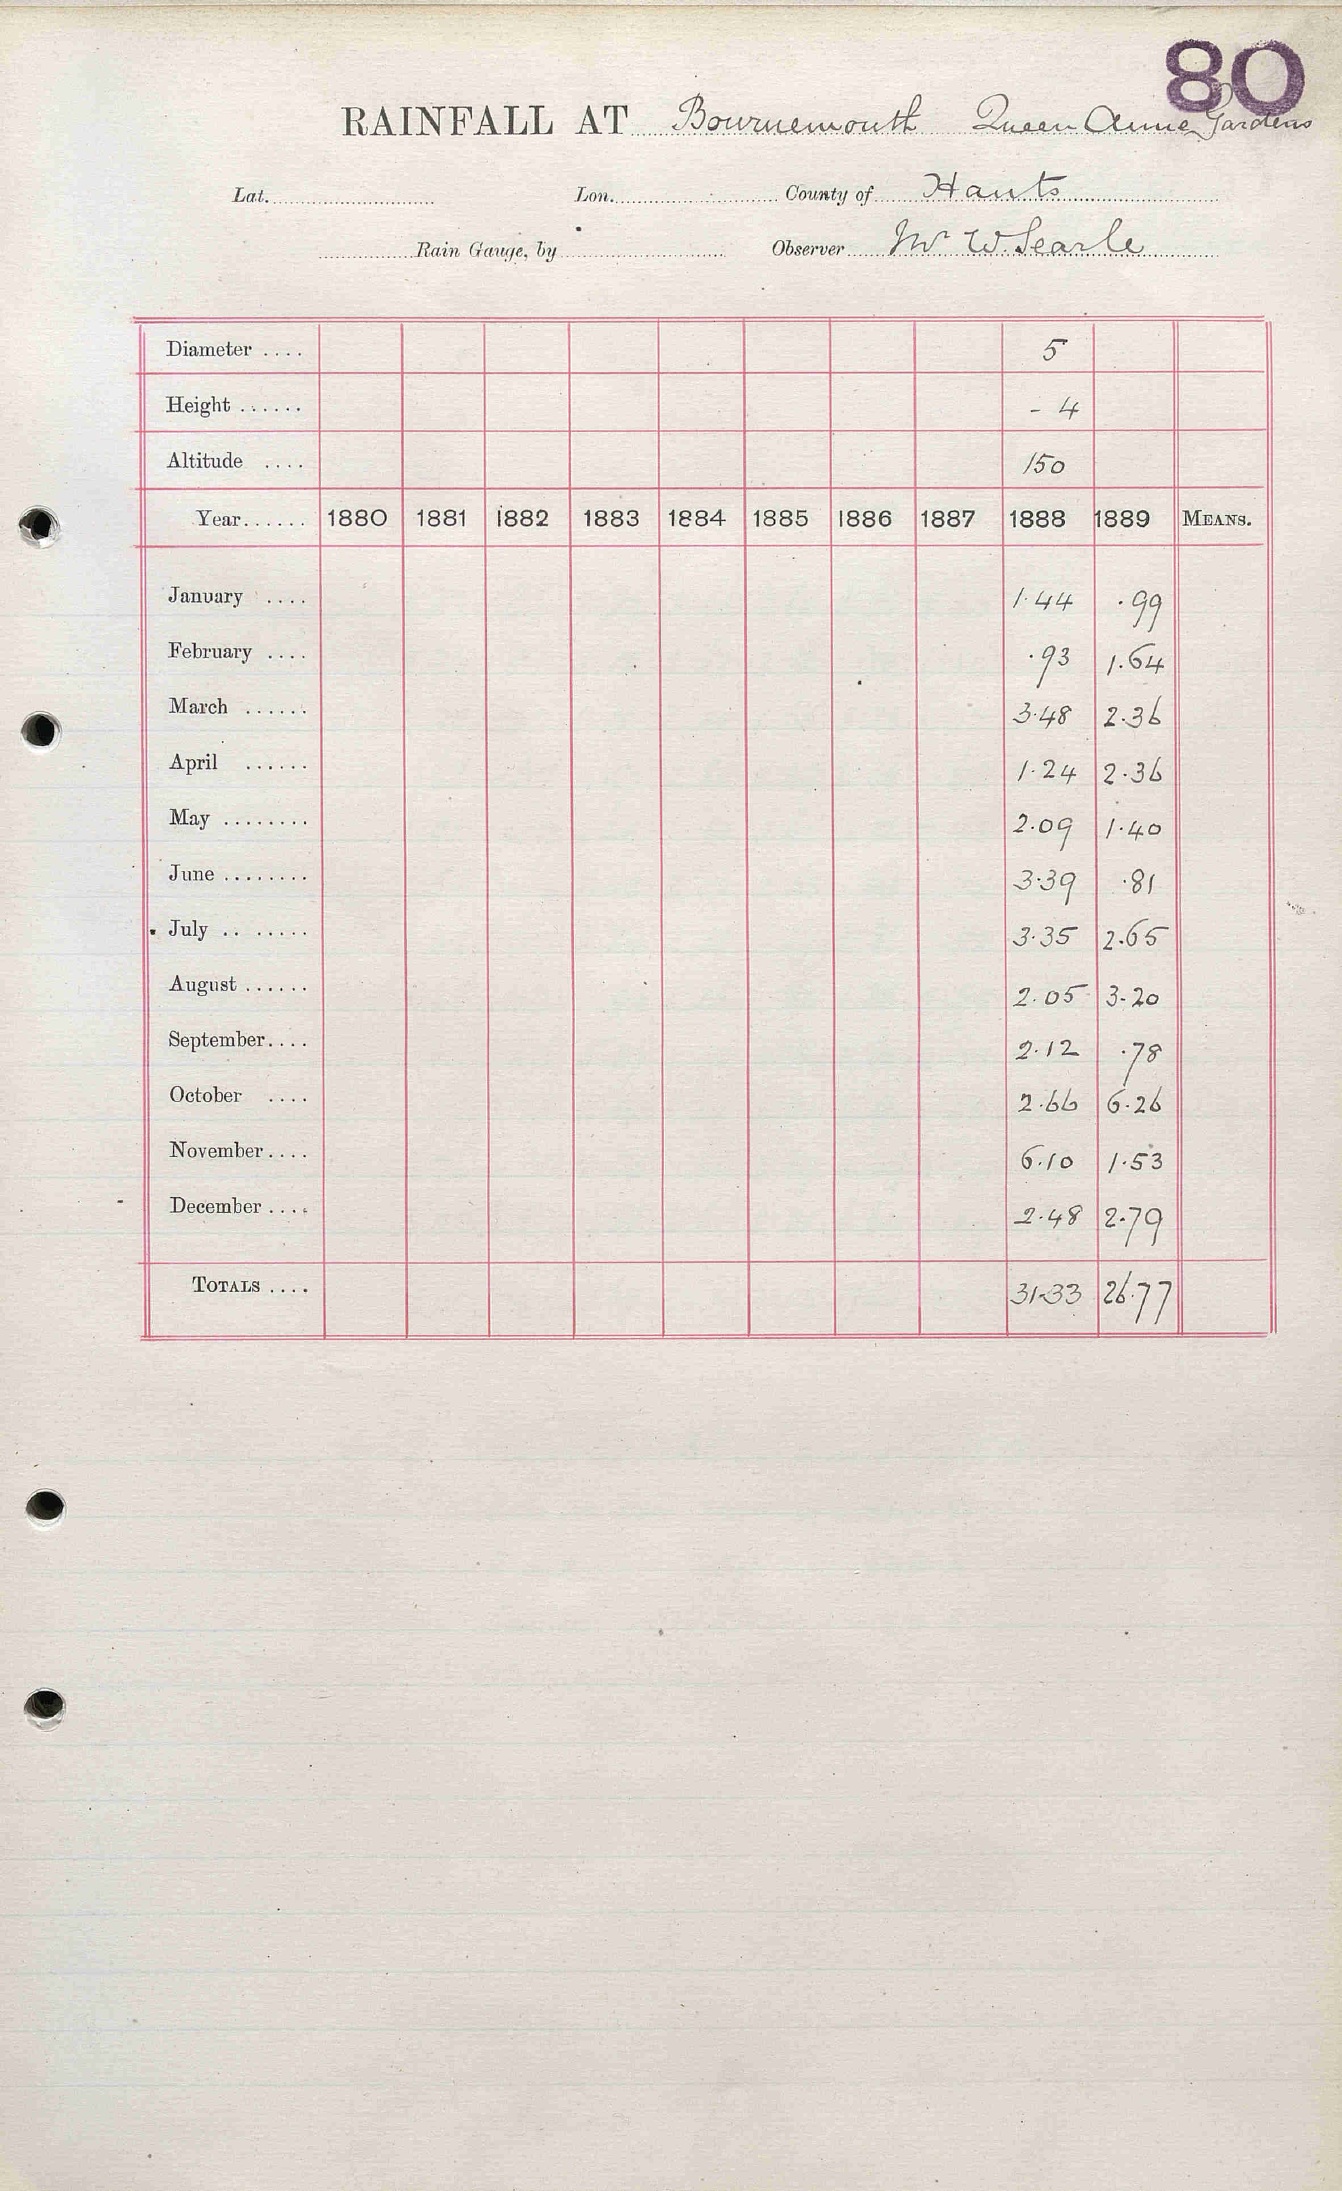 80
RAINFALL AT Bournemouth Queen Anne Gardens
Lat. Lon. County of Hants
Rain Gauge, by Observer Mr W. Searle
Diameter .... 5
Height ...... - 4
Altitude .... 150
Year...... 1880 1881 1882 1883 1884 1885 1886 1887 1888 1889 MEANS.
January .... 1.44 .99
February .... .93 1.64
March ...... 3.48 2.36
April ...... 1.24 2.36
May ........ 2.09 1.40
June ........ 3.39 .81
July .. ..... 3.35 2.65
August ...... 2.05 3.20
September.... 2.12 .78
October .... 2.66 6.26
November.... 6.10 1.53
December .... 2.48 2.79
TOTALS .... 31.33 26.77